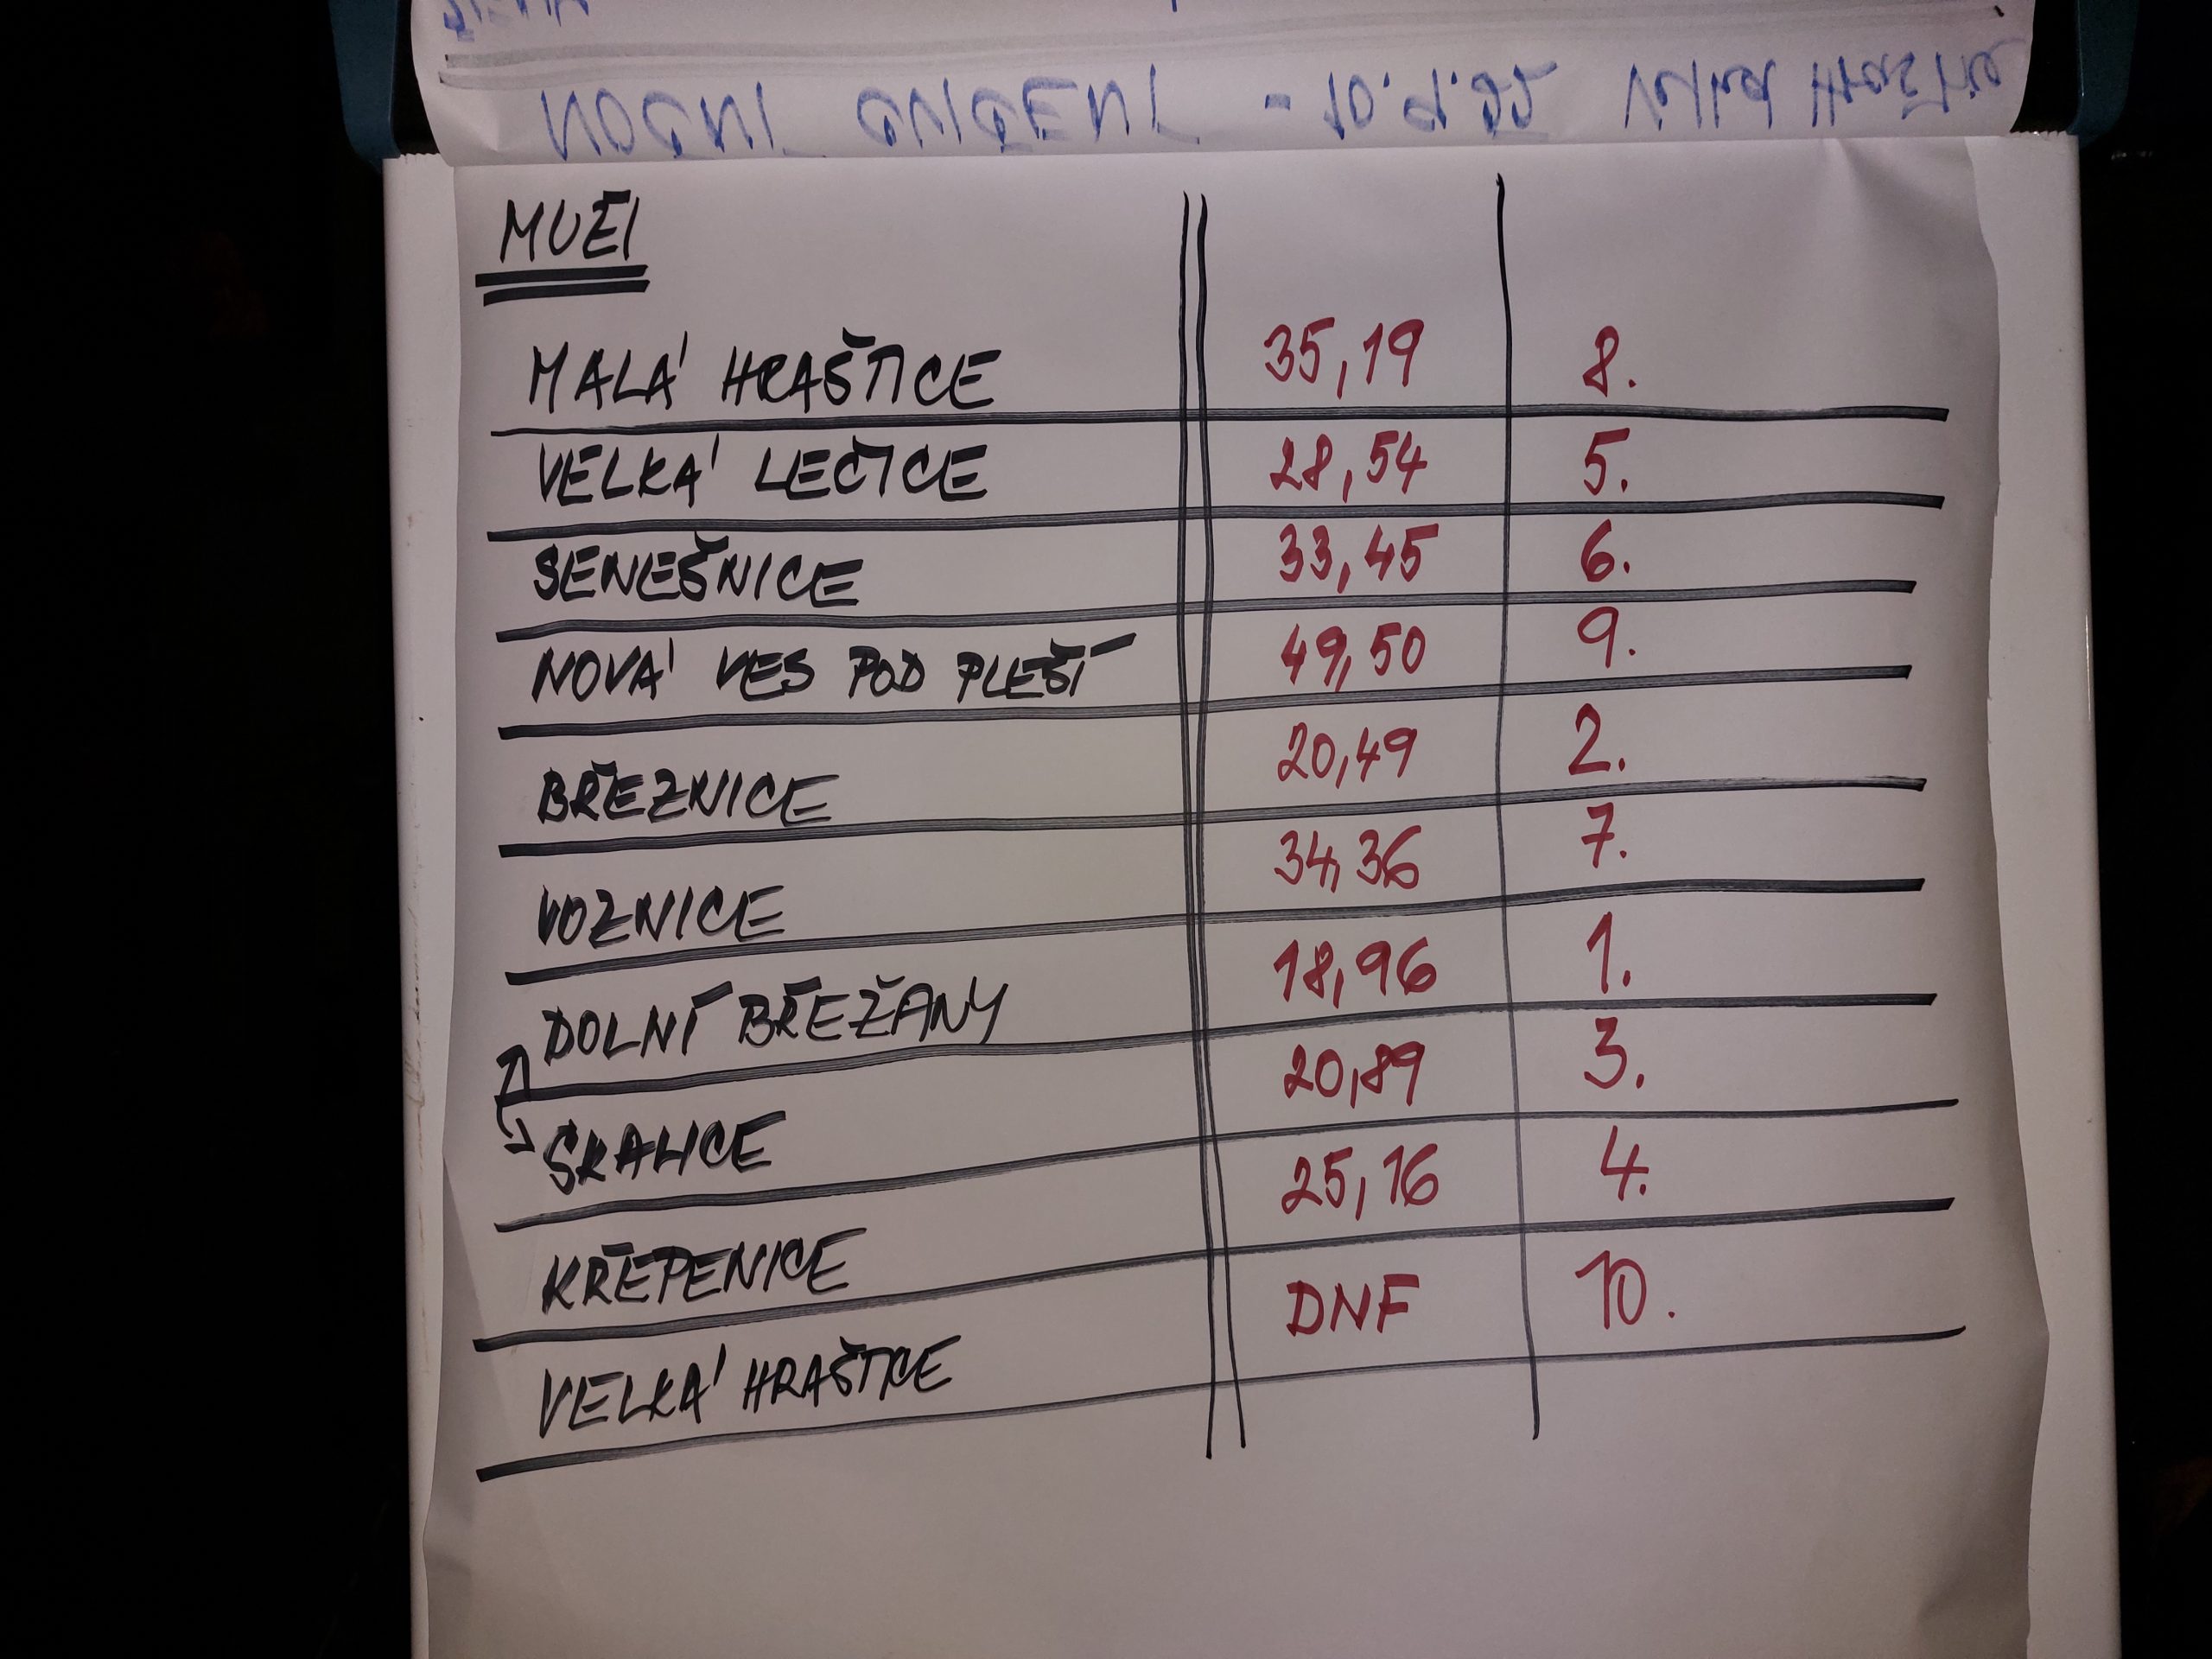 NOČNÍ CVIČENÍ - 10.9.22 Velká Hraštice
MUŽI
MALÁ HRAŠTICE 35,19 8.
VELKÁ LEČICE 28,54 5.
SENEŠNICE 33,45 6.
NOVÁ VES POD PLEŠÍ 49,50 9.
BŘEZNICE 20,49 2.
VOZNICE 34,36 7.
DOLNÍ BŘEŽANY 18,96 1.
SKALICE 20,89 3.
KŘEPENICE 25,16 4.
VELKÁ HRAŠTICE DNF 10.